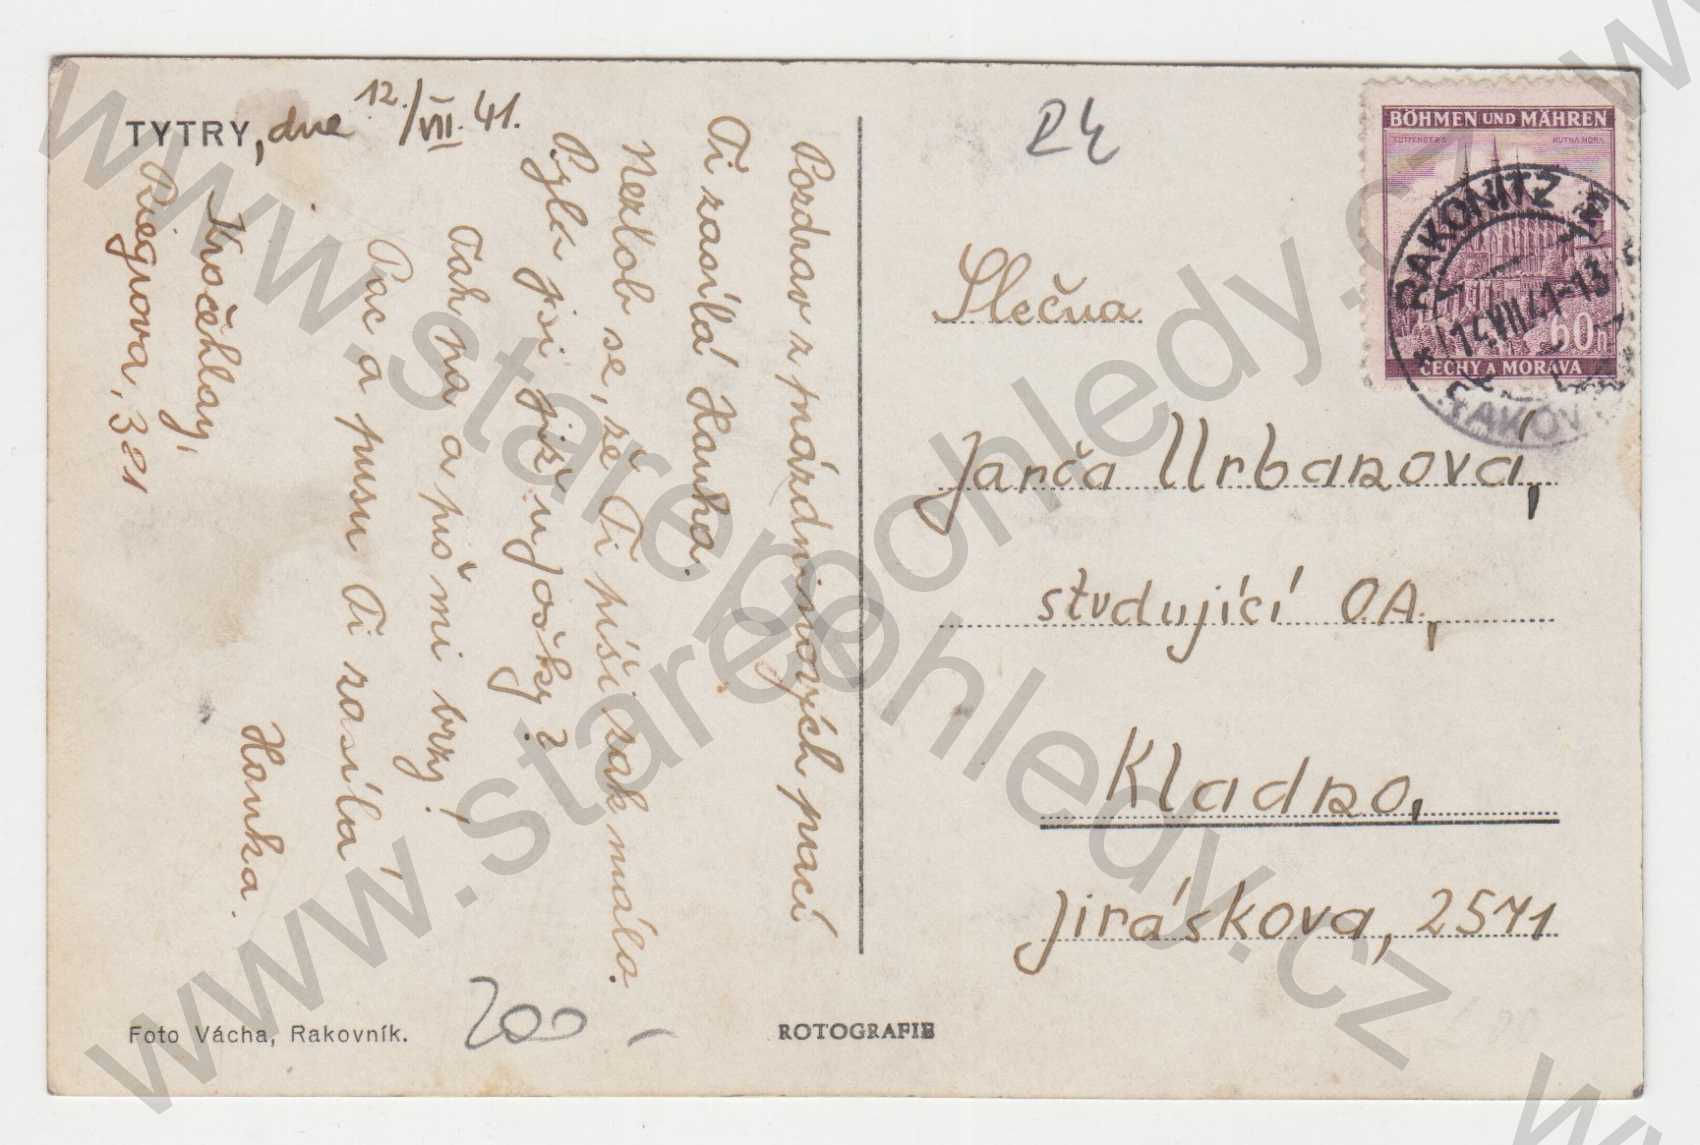 TYTRY, dne 12./VII. 41.
Pozdrav z prázdninových prací
Ti zasílá Hanka.
Nezlob se, že Ti píši tak málo.
Byla jsi již u Jošky?
Tah na a piš mi brzy!
Pac a pusu Ti zasílá
Hanka.
Kročehlavy,
Riegrova, 381
Foto Vácha, Rakovník.
200 -
ROTOGRAFIE
24
BÖHMEN UND MÄHREN
KUTTENBERG
KUTNÁ HORA
60h
ČECHY A MORAVA
RAKONITZ
14.VII.41-13
RAKOV
Slečna
Jarča Urbanová,
studující O.A.,
Kladno,
Jiráskova, 2571
www.starepohledy.cz
www.starepohledy.cz